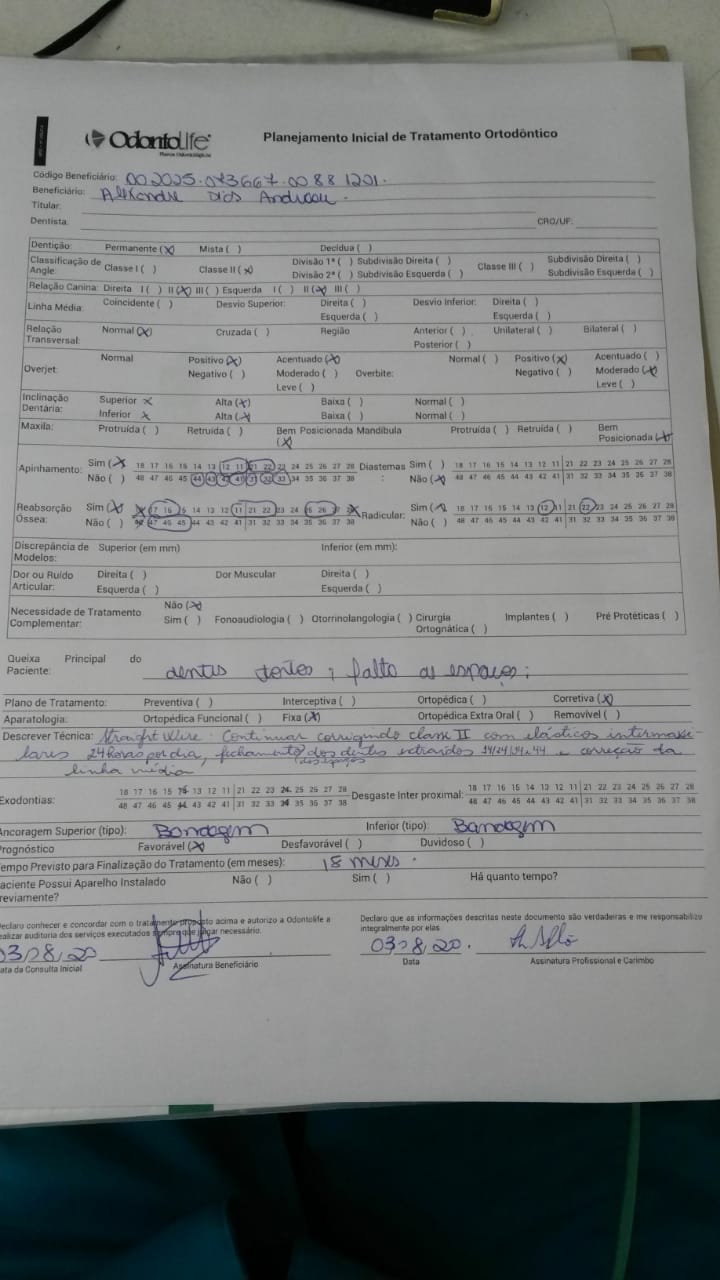 OdontoLife
Planos Odontológicos
Planejamento Inicial de Tratamento Ortodôntico
Código Beneficiário: 002025.073667.00881201.
Beneficiário: Alexandre Dias
Titular:
Dentista: CRO/UF:
Dentição: Permanente (x) Mista ( ) Decídua ( )
Classificação de Angle: Classe I ( ) Classe II (x) Divisão 1ª ( ) Subdivisão Direita ( ) Classe III ( ) Subdivisão Direita ( )
Divisão 2ª ( ) Subdivisão Esquerda ( ) Subdivisão Esquerda ( )
Relação Canina: Direita I ( ) II (x) III ( ) Esquerda I ( ) II (x) III ( )
Linha Média: Coincidente ( ) Desvio Superior: Direita ( ) Desvio Inferior: Direita ( )
Esquerda ( ) Esquerda ( )
Relação Transversal: Normal (x) Cruzada ( ) Região Anterior ( ) Unilateral ( ) Bilateral ( )
Posterior ( )
Overjet: Normal Positivo (x) Acentuado (x) Normal ( ) Positivo (x) Acentuado ( )
Negativo ( ) Moderado ( ) Overbite: Negativo ( ) Moderado (x)
Leve ( ) Leve ( )
Inclinação Dentária: Superior x Alta (x) Baixa ( ) Normal ( )
Inferior x Alta (x) Baixa ( ) Normal ( )
Maxila: Protruída ( ) Retruída ( ) Bem Posicionada (x) Mandíbula Protruída ( ) Retruída ( ) Bem Posicionada (x)
Apinhamento: Sim (x) 18 17 16 15 14 13 12 11 21 22 23 24 25 26 27 28 Diastemas: Sim ( ) 18 17 16 15 14 13 12 11 21 22 23 24 25 26 27 28
Não ( ) 48 47 46 45 44 43 42 41 31 32 33 34 35 36 37 38 Não (x) 48 47 46 45 44 43 42 41 31 32 33 34 35 36 37 38
Reabsorção Óssea: Sim (x) 17 16 15 14 13 12 11 21 22 23 24 25 26 27 Radicular: Sim (x) 18 17 16 15 14 13 12 11 21 22 23 24 25 26 27 28
Não ( ) 47 46 45 44 43 42 41 31 32 33 34 35 36 37 38 Não ( ) 48 47 46 45 44 43 42 41 31 32 33 34 35 36 37 38
Discrepância de Modelos: Superior (em mm) Inferior (em mm):
Dor ou Ruído Articular: Direita ( ) Dor Muscular Direita ( )
Esquerda ( ) Esquerda ( )
Necessidade de Tratamento Complementar: Não (x)
Sim ( ) Fonoaudiologia ( ) Otorrinolangologia ( ) Cirurgia Ortognática ( ) Implantes ( ) Pré Protéticas ( )
Queixa Principal do Paciente: dentes tortos; falta os espaços;
Plano de Tratamento: Preventiva ( ) Interceptiva ( ) Ortopédica ( ) Corretiva (x)
Aparatologia: Ortopédica Funcional ( ) Fixa (x) Ortopédica Extra Oral ( ) Removível ( )
Descrever Técnica: Straight Wire. Continuar corrigindo classe II com elásticos intermaxi-
lares 24 horas por dia, fechamento dos espaços dos dentes extraídos 14/24/34 e 44 e correção da
linha média
Exodontias: 18 17 16 15 14 13 12 11 21 22 23 24 25 26 27 28 Desgaste Inter proximal: 18 17 16 15 14 13 12 11 21 22 23 24 25 26 27 28
48 47 46 45 44 43 42 41 31 32 33 34 35 36 37 38 48 47 46 45 44 43 42 41 31 32 33 34 35 36 37 38
Ancoragem Superior (tipo): Bandagem Inferior (tipo): Bandagem
Prognóstico Favorável (x) Desfavorável ( ) Duvidoso ( )
Tempo Previsto para Finalização do Tratamento (em meses): 18 meses.
Paciente Possui Aparelho Instalado Previamente? Não ( ) Sim ( ) Há quanto tempo?
Declaro conhecer e concordar com o tratamento proposto acima e autorizo a Odontolife a
realizar auditoria dos serviços executados sempre que julgar necessário.
Declaro que as informações descritas neste documento são verdadeiras e me responsabilizo
integralmente por elas
03/8/20 03/8/20.
Data da Consulta Inicial Assinatura Beneficiário Data Assinatura Profissional e Carimbo